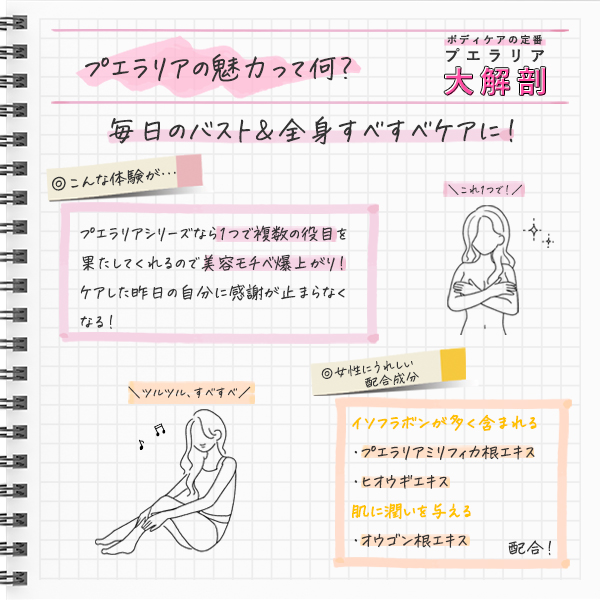 プエラリアの魅力って何？
ボディケアの定番
プエラリア
大解剖
毎日のバスト&全身すべすべケアに！
◎こんな体験が…
プエラリアシリーズなら1つで複数の役目を
果たしてくれるので美容モチベ爆上がり！
ケアした昨日の自分に感謝が止まらなく
なる！
＼これ1つで！／
＼ツルツル、すべすべ／
◎女性にうれしい
配合成分
イソフラボンが多く含まれる
・プエラリアミリフィカ根エキス
・ヒオウギエキス
肌に潤いを与える
・オウゴン根エキス
配合！